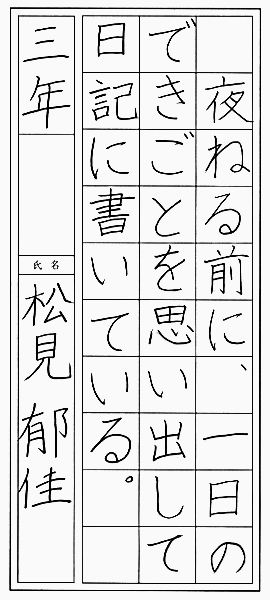 夜ねる前に、一日の
できごとを思い出して
日記に書いている。
三年
氏名
松見郁佳